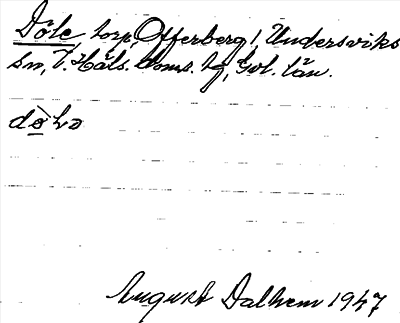 Döle torp, Offerberg 1, Undersviks
sn, V. Häls. doms. hg, Gvl. län.
August Dalhem 1947